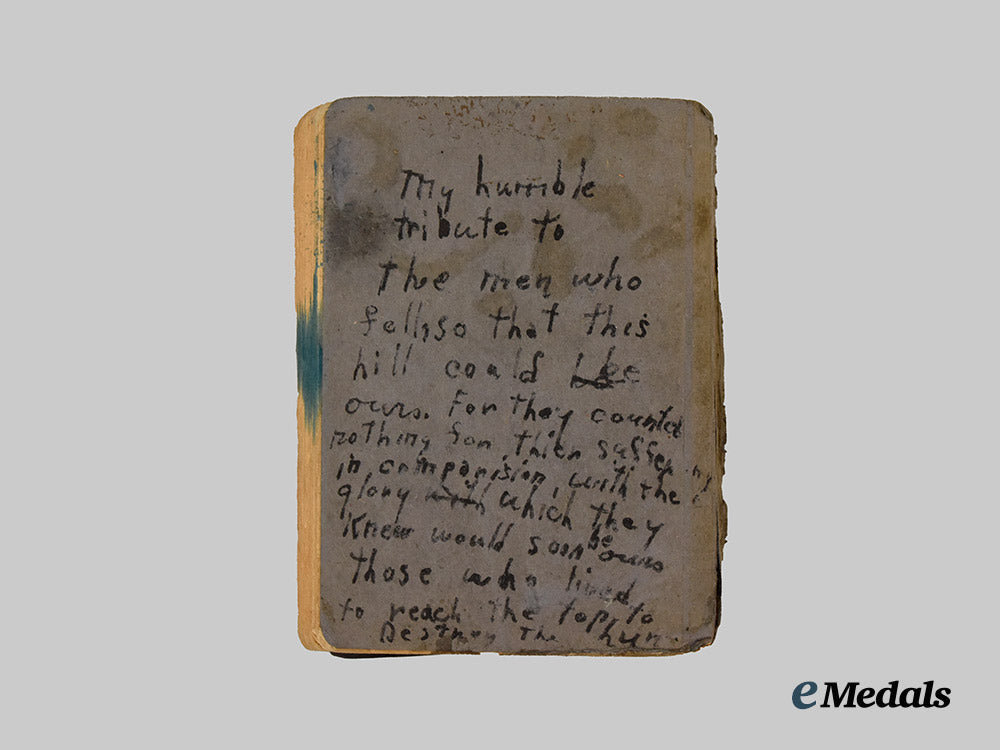 My hurrible
tribute to
the men who
fell, so that this
hill could be
ours. For they counted
nothing for thier suffering
in comparision with the
glory with which they
Knew would soon be ours
those who lived
to reach the top, to
Destroy The hun
eMedals